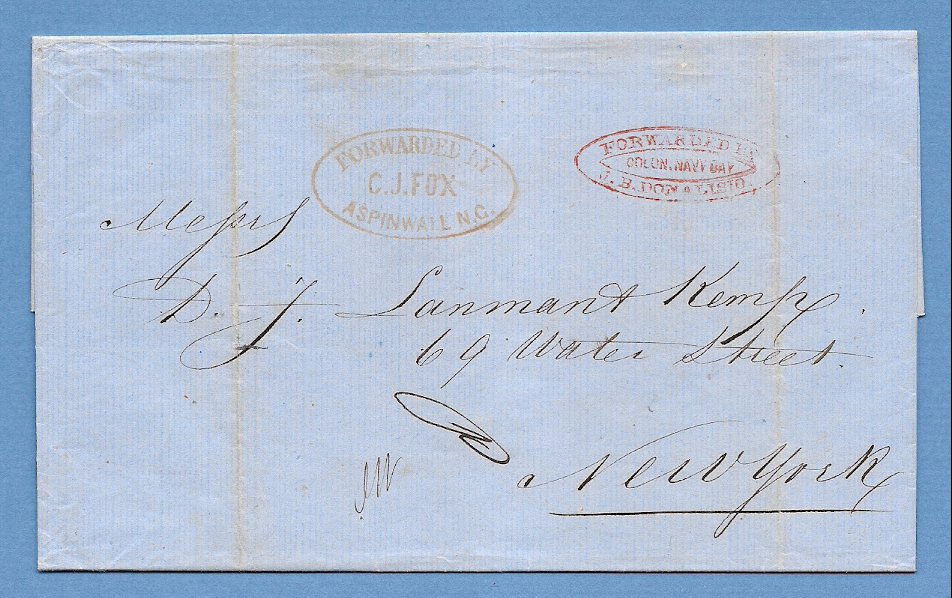 FORWARDED BY
C. J. FOX
ASPINWALL N.G.
FORWARDED BY
COLON, NAVY BAY
J. B. DONALISIO
Messrs
D. J. Lanman & Kemp
69 Water Street
New York